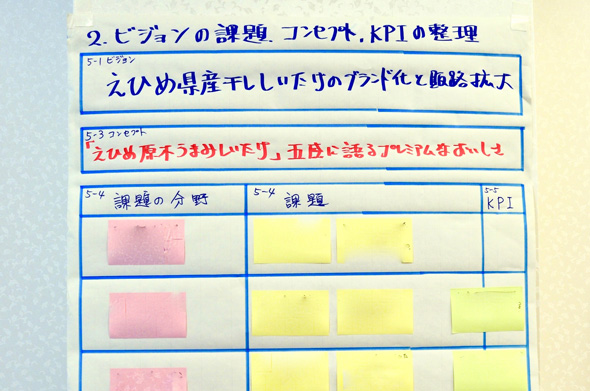 2. ビジョンの課題、コンセプト、KPIの整理
5-1 ビジョン
えひめ県産干ししいたけのブランド化と販路拡大
5-3 コンセプト
「えひめ原木うまみしいたけ」五感に語るプレミアムなおいしさ
5-4 課題の分野
5-4 課題
5-5 KPI